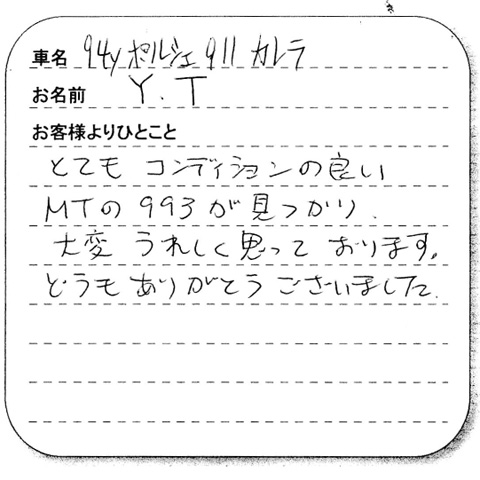 車名 94y ポルシェ 911 カレラ
お名前 Y.T
お客様よりひとこと
とても コンディションの良い
MTの 993 が 見つかり.
大変 うれしく思って おります。
どうも ありがとう ございました.